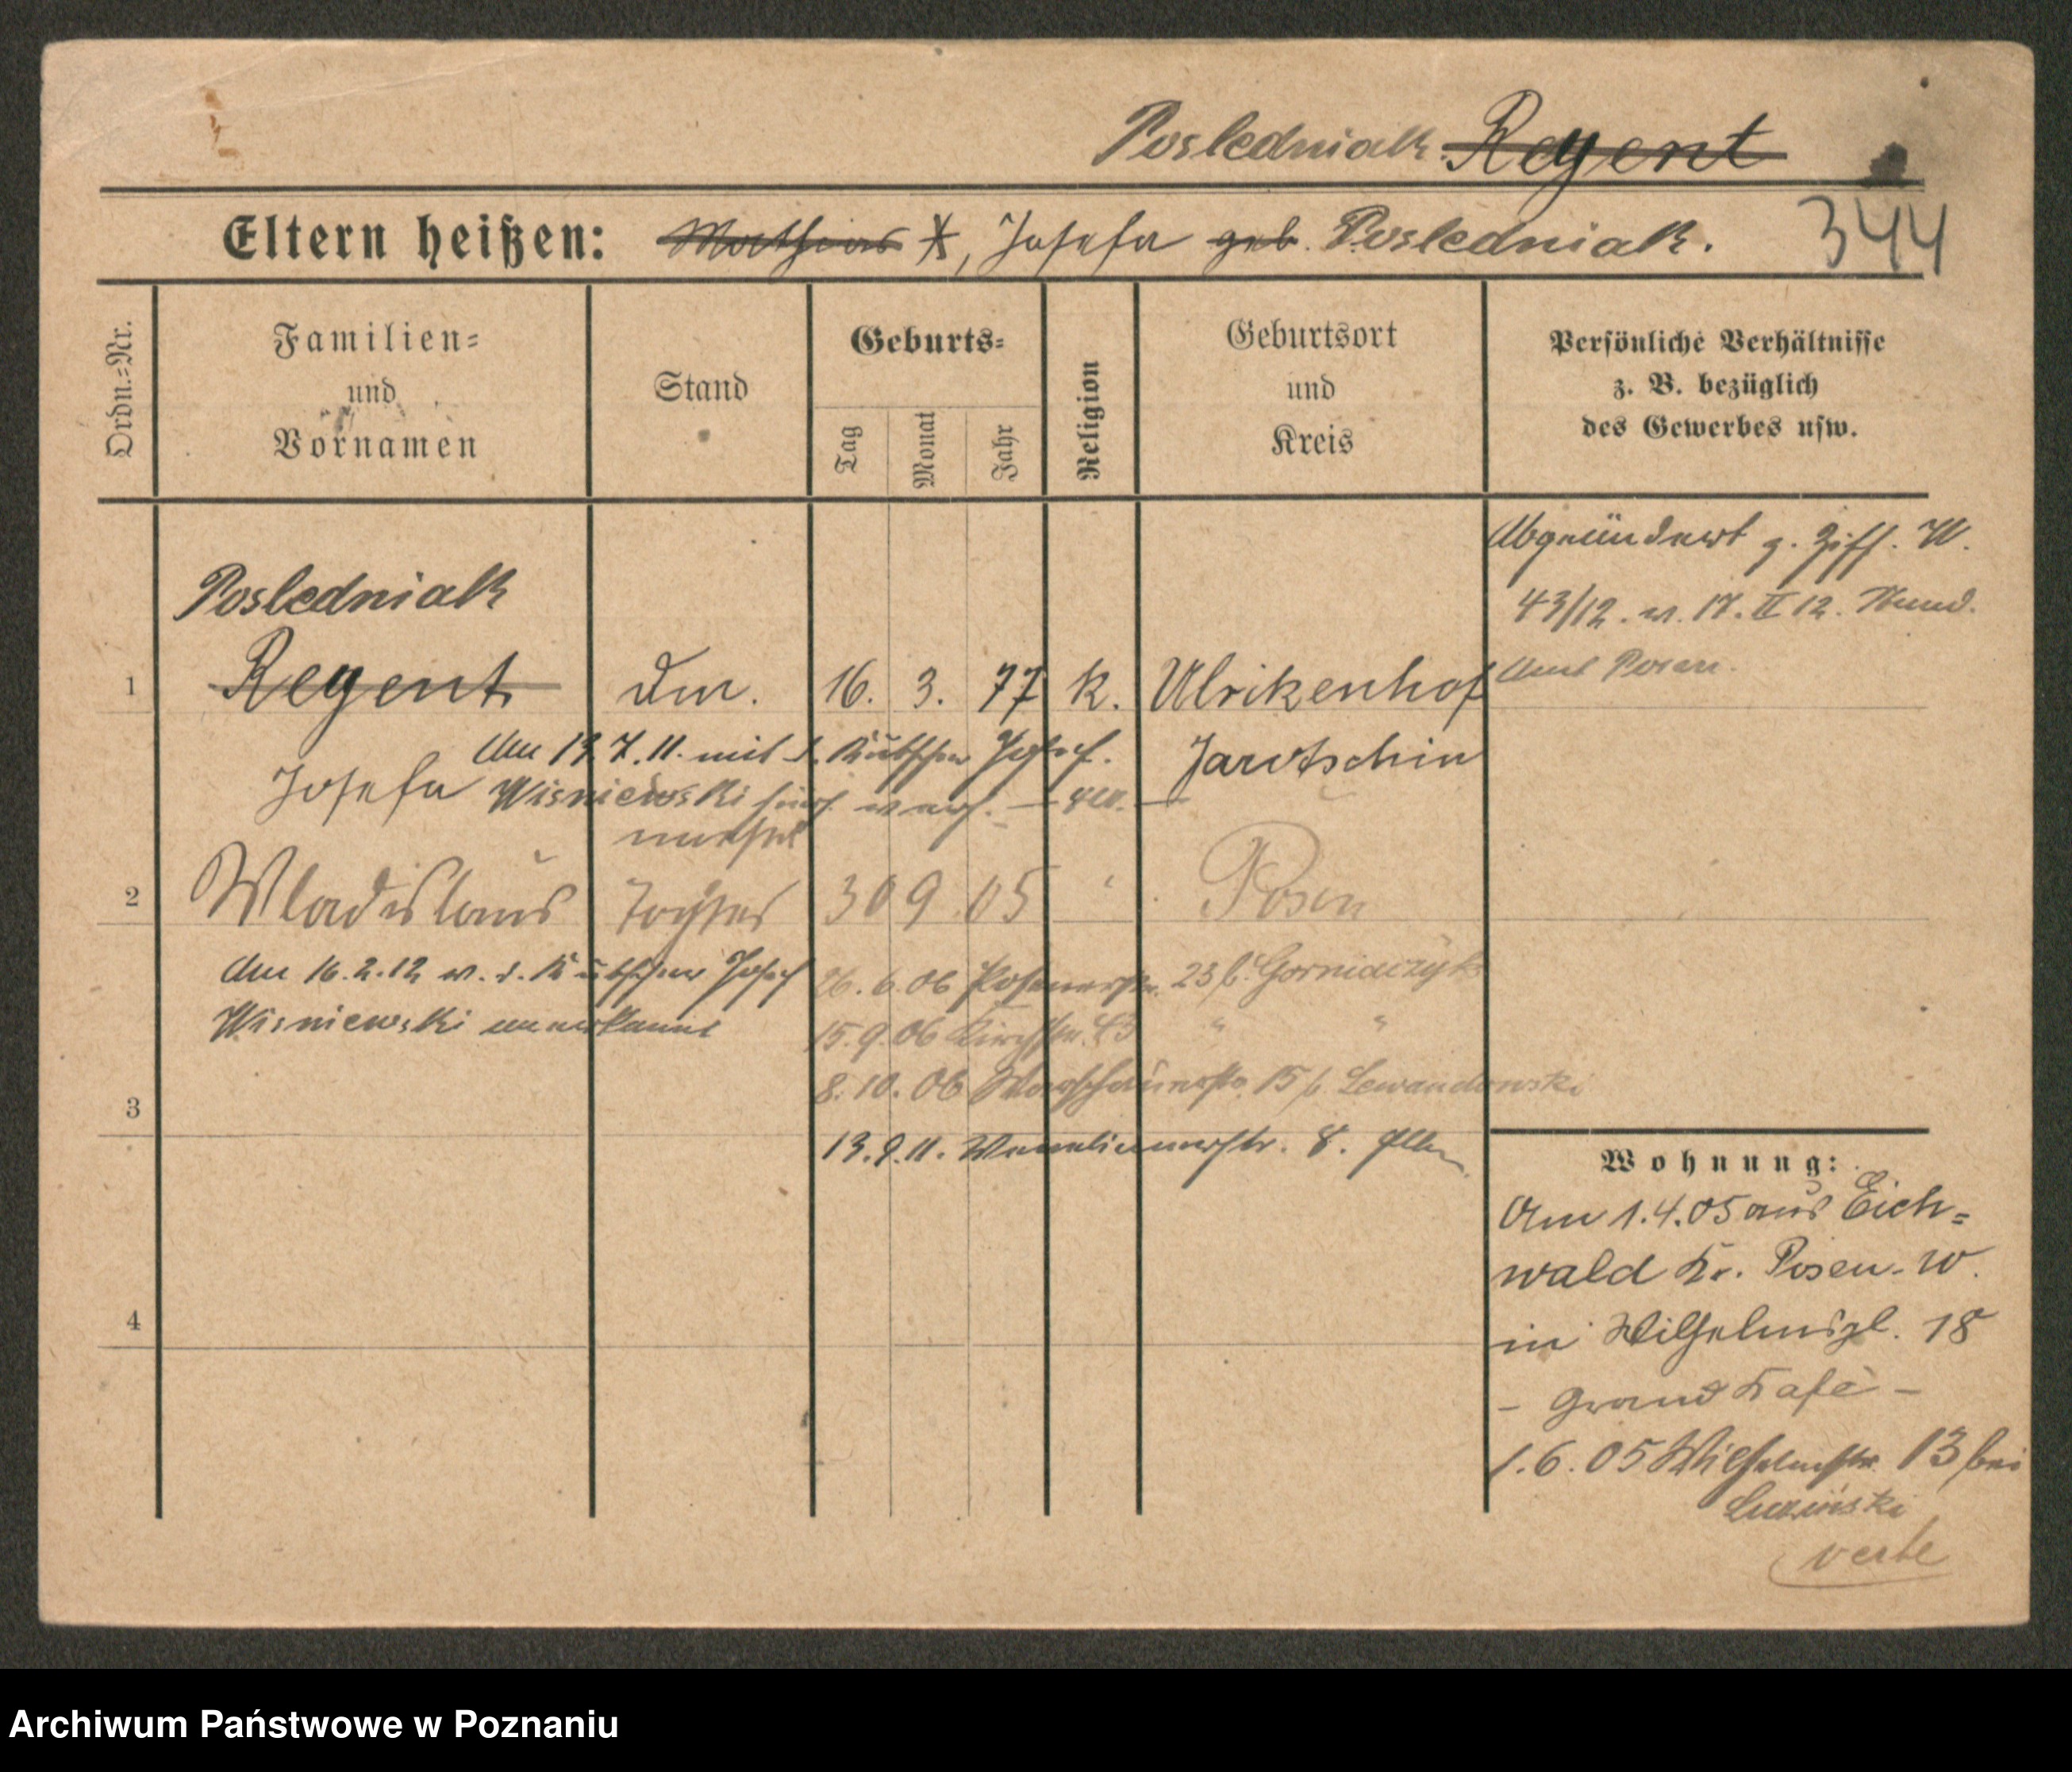 Posledniak Regent
344
Eltern heißen: Mathias X, Josefa geb. Posledniak.
Ordn.-Nr.
Familien-
und
Vornamen
Stand
Geburts-
Tag
Monat
Jahr
Religion
Geburtsort
und
Kreis
Persönliche Verhältnisse
z. B. bezüglich
des Gewerbes usw.
Abgeändert g. Ziff. W.
43/12. v. 17. II 12.
Amt Posen.
Posledniak
1 Regent 16. 3. 77 k. Ulrikenhof
Jarotschin
Am 13.7.11. mit d. Kutscher Josef
Josefa Wisniewski
unehel
2 Wladislaus 30 9 05 Posen
Am 16.2.12 v. d. Kutscher Josef
Wisniewski anerkannt
26.6.06 Posenerstr. 23 b. Gorniaczyk
15.9.06 Kirchstr. 43 " "
8.10.06 15 b. Lewandowski
3
13.9.11. 8.
4
Wohnung:
Am 1.4.05 aus Eich-
wald Kr. Posen-W.
in Wilhelmspl. 18
- Grand Kafé -
1.6.05 Wilhelmstr. 13 bei
verte
Archiwum Państwowe w Poznaniu